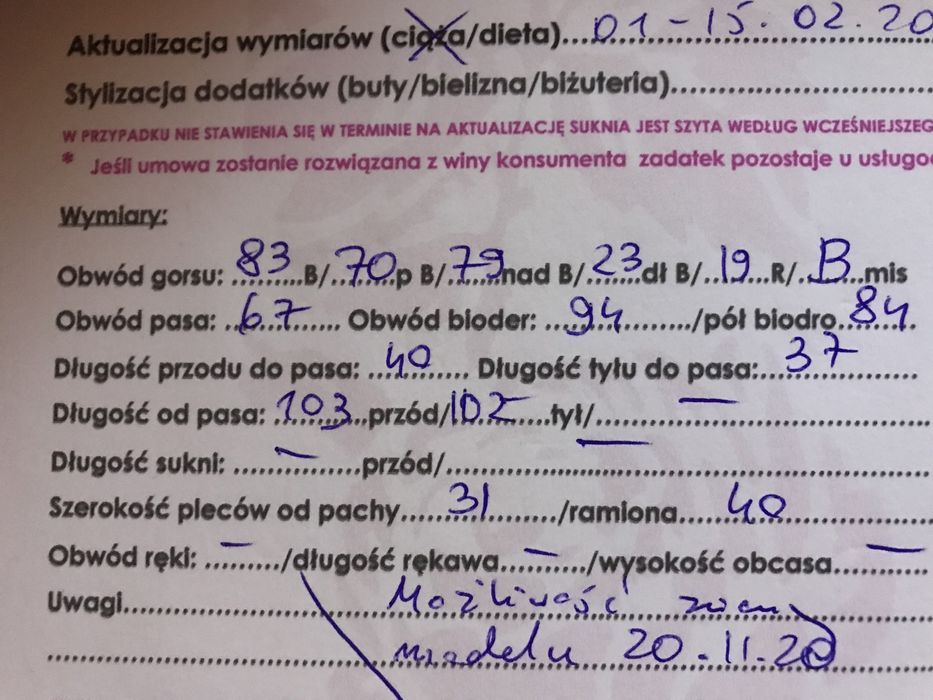 Aktualizacja wymiarów (ciąża/dieta)...01-15.02.20
Stylizacja dodatków (buty/bielizna/biżuteria)..............................
W PRZYPADKU NIE STAWIENIA SIĘ W TERMINIE NA AKTUALIZACJĘ SUKNIA JEST SZYTA WEDŁUG WCZEŚNIEJSZEG
* Jeśli umowa zostanie rozwiązana z winy konsumenta zadatek pozostaje u usługo
Wymiary:
Obwód gorsu: 83 B/ 70 p B/ 79 nad B/ 23 dł B/ 19 R/ B mis
Obwód pasa: 67 Obwód bioder: 94 /pół biodro 84
Długość przodu do pasa: 40 Długość tyłu do pasa: 37
Długość od pasa: 103 przód/ 102 tył/ —
Długość sukni: — przód/ —
Szerokość pleców od pachy 31 /ramiona 40
Obwód ręki: — /długość rękawa — /wysokość obcasa —
Uwagi Możliwość zmiany
modelu 20.11.20